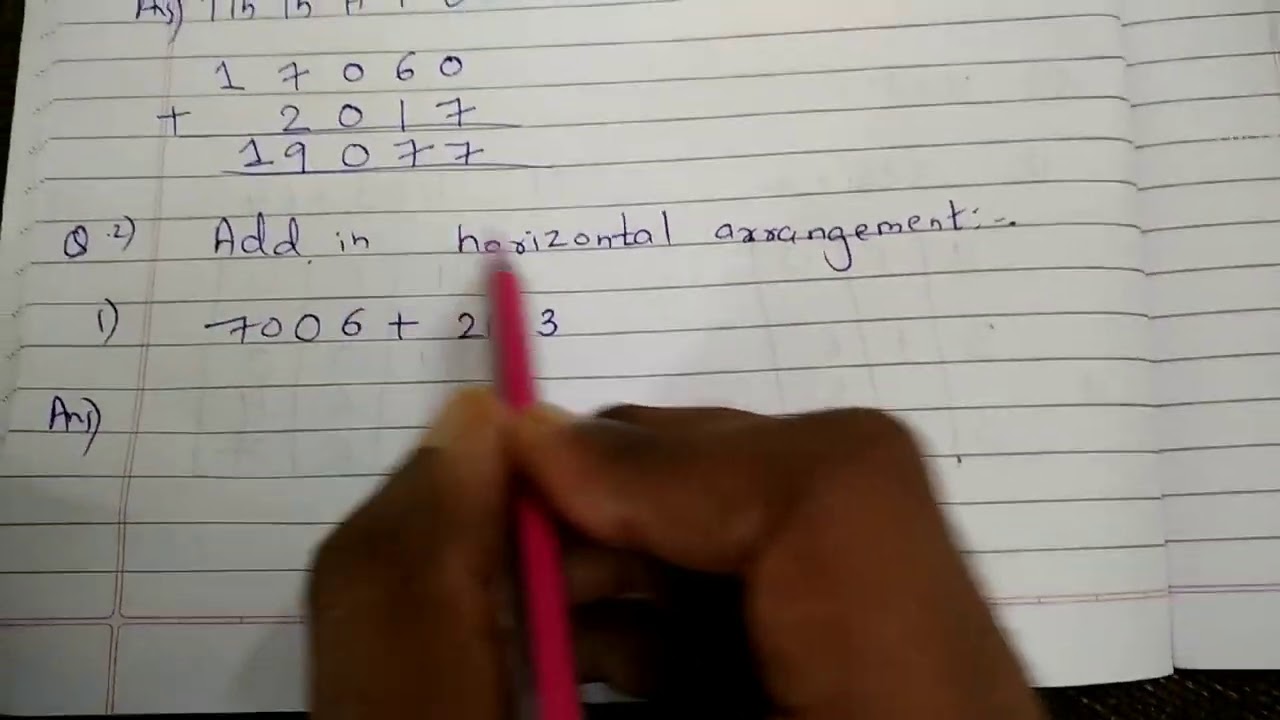 Ans) Th Th H T O
1 7 0 6 0
+ 2 0 1 7
1 9 0 7 7
Q.2) Add in horizontal arrangement:-
1) 7006 +
Ans)